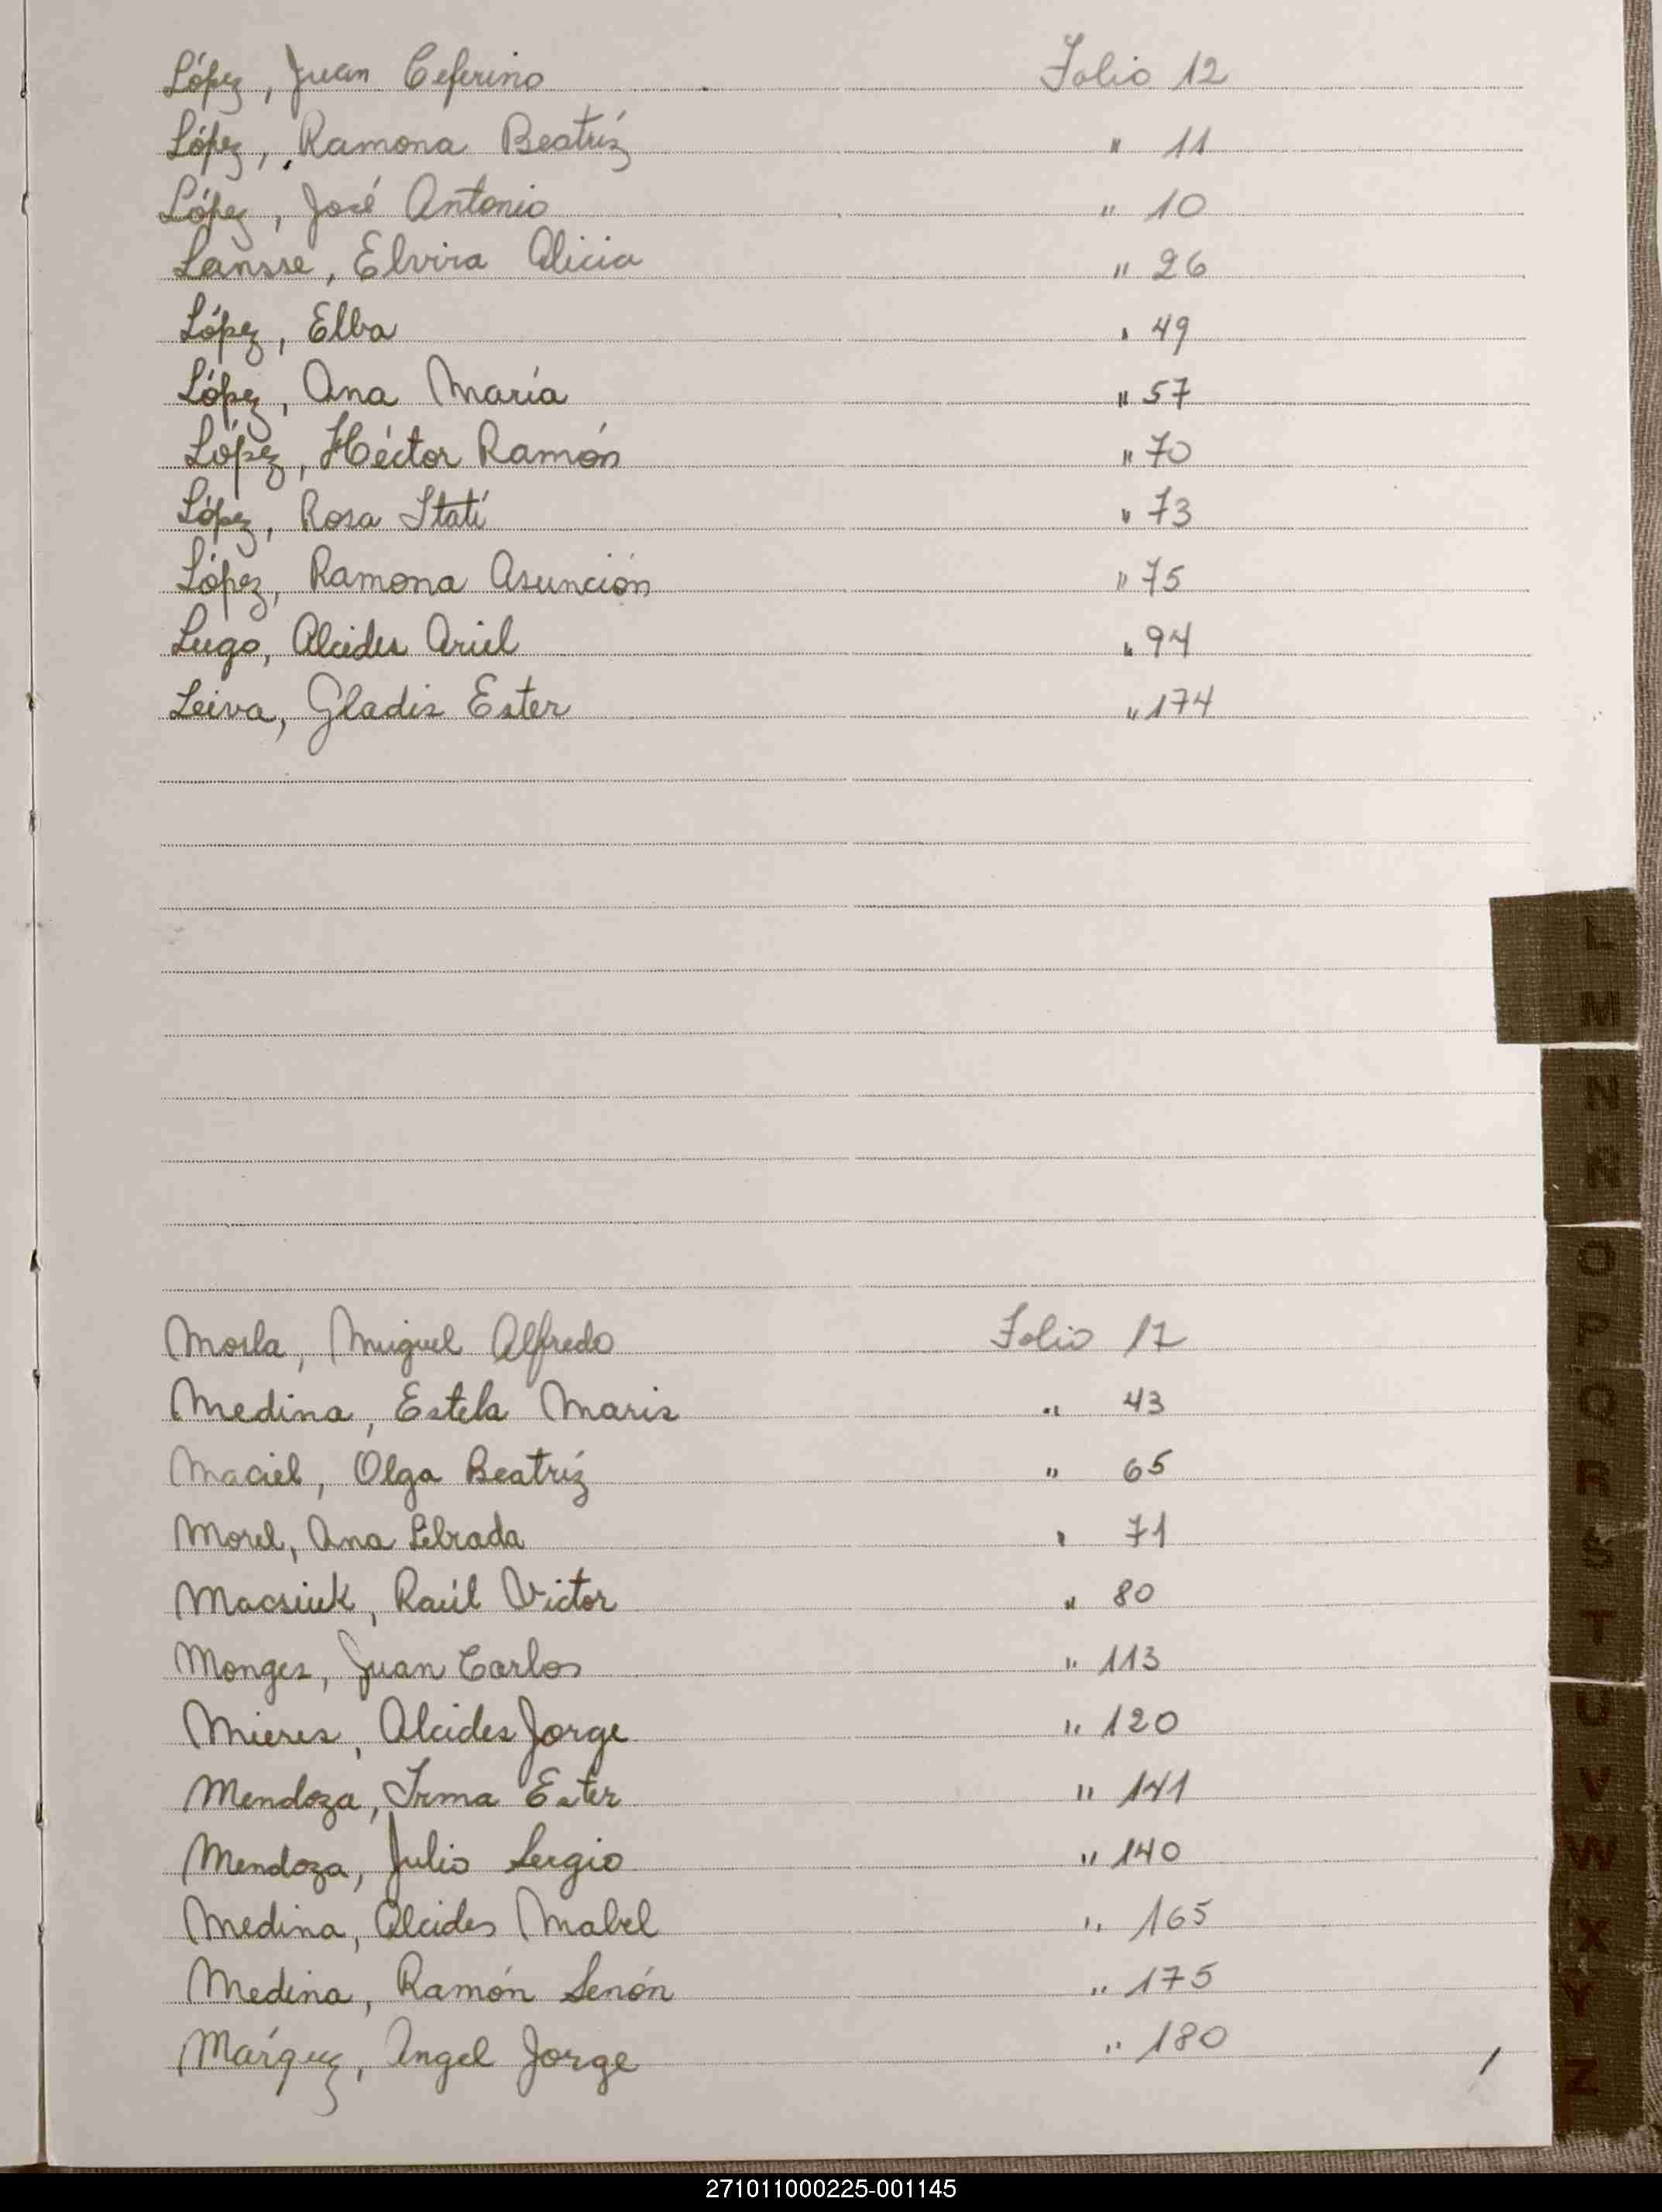 López, Juan Ceferino Folio 12
López, Ramona Beatríz " 11
López, José Antonio " 10
Lansse, Elvira Alicia " 26
López, Elba " 49
López, Ana María " 57
López, Héctor Ramón " 70
López, Rosa Itatí " 73
López, Ramona Asunción " 75
Lugo, Alcides Ariel " 94
Leiva, Gladis Ester " 174
L
M
N
Ñ
O
P
Q
R
S
T
U
V
W
X
Y
Z
Morla, Miguel Alfredo Folio 17
Medina, Estela Maris " 43
Maciel, Olga Beatríz " 65
Morel, Ana Librada " 71
Macsiuk, Raúl Victor " 80
Monges, Juan Carlos " 113
Mieres, Alcides Jorge " 120
Mendoza, Irma Ester " 141
Mendoza, Julio Sergio " 140
Medina, Alcides Mabel " 165
Medina, Ramón Senón " 175
Márquez, Angel Jorge " 180
271011000225-001145